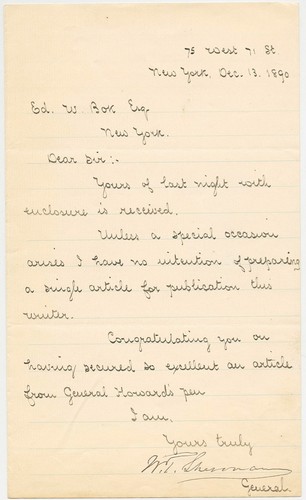 75 West 71 St
New York, Dec. 13. 1890
Ed. W. Bok Esq
New York.
Dear Sir:-
Yours of last night with
enclosure is received.
Unless a special occasion
arises I have no intention of preparing
a single article for publication this
winter.
Congratulating you on
having secured so excellent an article
from General Howard's pen
I am,
Yours truly
W. T. Sherman
General.